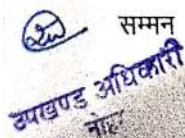 सम्मन
उपखण्ड अधिकारी
नोहर